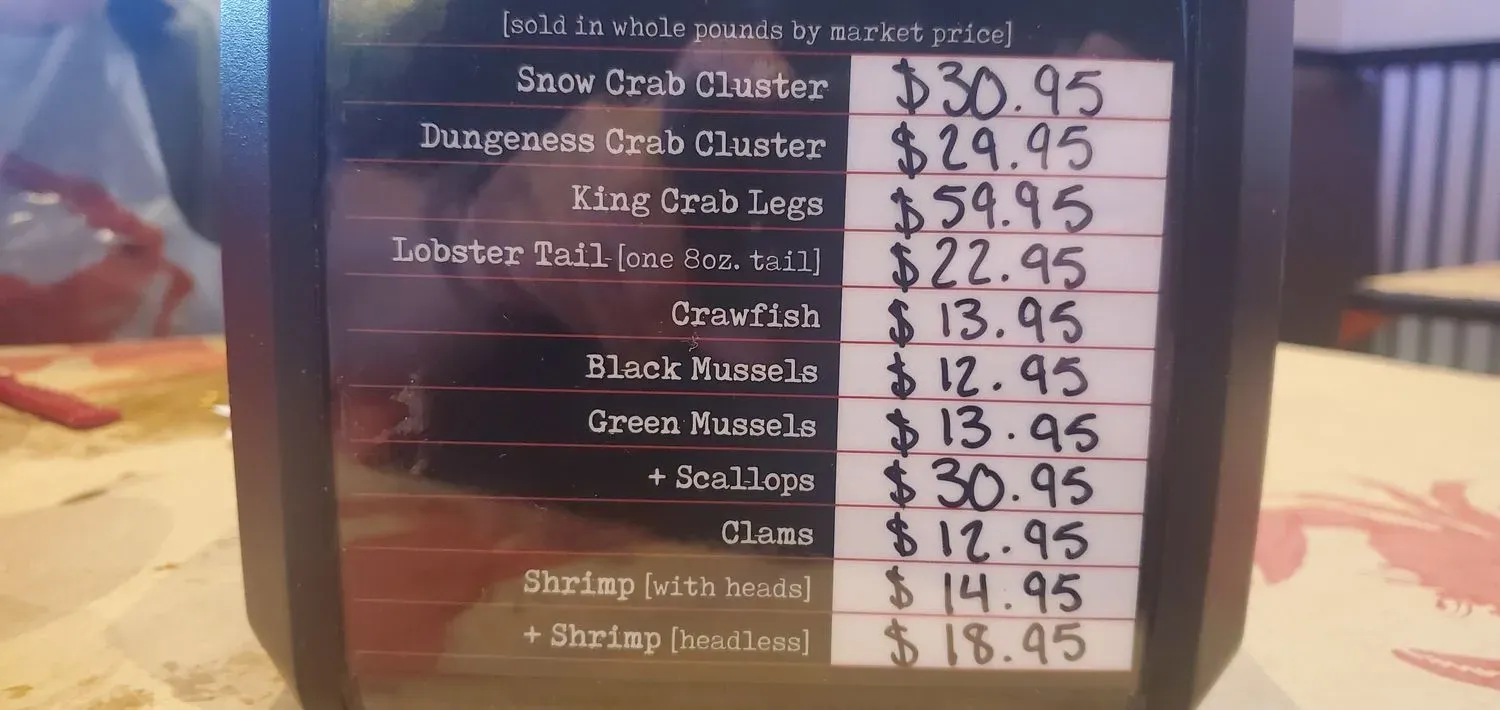 [sold in whole pounds by market price]
Snow Crab Cluster $30.95
Dungeness Crab Cluster $29.95
King Crab Legs $59.95
Lobster Tail [one 8oz. tail] $22.95
Crawfish $13.95
Black Mussels $12.95
Green Mussels $13.95
+ Scallops $30.95
Clams $12.95
Shrimp [with heads] $14.95
+ Shrimp [headless] $18.95